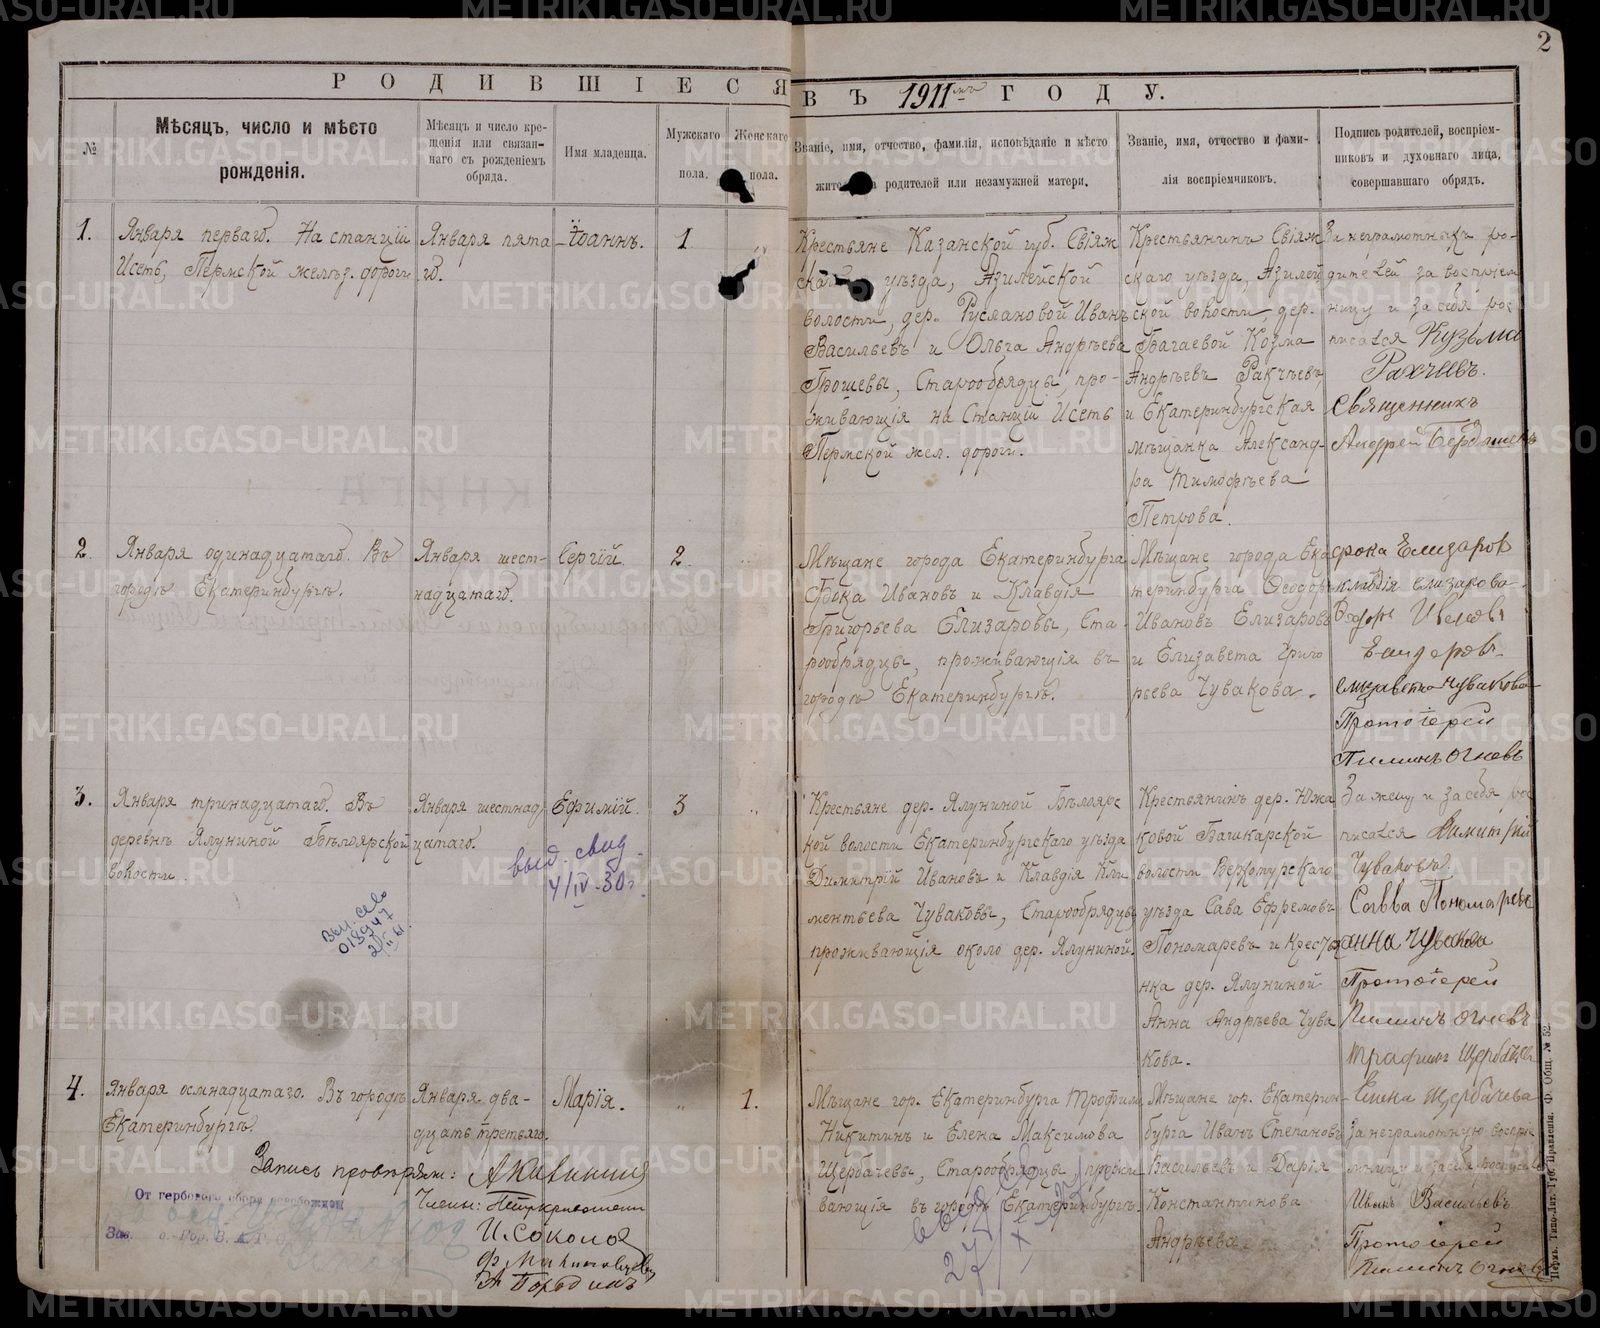 2
РОДИВШІЕСЯ ВЪ 1911мъ ГОДУ.
№
Мѣсяцъ, число и мѣсто
рожденія.
Мѣсяцъ и число кре-
щенія или связан-
наго съ рожденіемъ
обряда.
Имя младенца.
Мужскаго
пола.
Женскаго
пола.
Званіе, имя, отчество, фамилія, исповѣданіе и мѣсто
родителей или незамужней матери.
Званіе, имя, отчество и фами-
лія воспріемчиковъ.
Подпись родителей, воспріем-
никовъ и духовнаго лица,
совершавшаго обрядъ.
1.
Января перваго. На станціи
Исеть, Пермской желѣз. дороги
Января пята
го.
Іоаннъ.
1
Крестьяне Казанской губ. Свіяж
уѣзда, Азилейской
волости, дер. Руслановой Иванъ
Васильевъ и Ольга Андрѣева
Грошевы, Старообрядцы, про-
живающія на Станціи Исеть
Пермской жел. дороги.
Крестьянинъ Свіяж
скаго уѣзда, Азилей
ской волости, дер.
Багаевой Козма
Андрѣевъ Ракчѣевъ
и Екатеринбургская
мѣщанка Александ-
ра Тимофѣева
Петрова.
За неграмотныхъ ро-
дителей за воспріем
ницу и за себя рос
писался Кузьма
Рахчеевъ.
Священникъ
Андрей
2.
Января одинадцатаго. Въ
городѣ Екатеринбургѣ.
Января шест-
надцатаго.
Сергій.
2
Мѣщане города Екатеринбурга
Фока Ивановъ и Клавдія
Григорьева Елизаровы, Ста-
рообрядцы, проживающія въ
городѣ Екатеринбургѣ.
Мѣщане города Ека
теринбурга Феодоръ
Ивановъ Елизаровъ
и Елизавета Григо
рьева Чувакова.
Фока Елизаров
клавдія елизарова
елизавета чувакова
Протоіерей
Пименъ Огневъ
3.
Января тринадцатаго. Въ
деревнѣ Ялуниной Бѣлоярской
волости.
Января шестнад
цатаго.
Ефимій.
3
выд. свид.
4/IV-30г.
Крестьяне дер. Ялуниной Бѣлоярс
кой волости Екатеринбургскаго уѣзда
Димитрій Ивановъ и Клавдія Кли
ментьева Чуваковы, Старообрядцы
проживающія около дер. Ялуниной.
Крестьянинъ дер. Южа
ковой Башкарской
волости Верхотурскаго
уѣзда Сава Ефремовъ
Пономаревъ и Крестья
нка дер. Ялуниной
Анна Андрѣева Чува
кова.
За жену и за себя рос
писался Димитрій
Чуваковъ.
Савва Пономаревъ
анна чувакова
Протоіерей
Пименъ Огневъ
4.
Января осмнадцатаго. Въ городѣ
Екатеринбургѣ.
Января два-
дцать третьяго.
Марія.
1.
Мѣщане гор. Екатеринбурга Трофимъ
Никитинъ и Елена Максимова
Щербачевы, Старообрядцы, прожи
вающія въ городѣ Екатеринбургѣ.
Мѣщане гор. Екатерин-
бурга Иванъ Степановъ
Васильевъ и Дарія
Константинова
Андрѣева.
Трафимъ Щербачевъ
Елена Щербачева
За неграмотную воспріе
мницу и за себя росписался
Иванъ Васильевъ
Протоіерей
Пименъ Огневъ
Члены:
И. Соколов
А Бородинъ
От гербового сбора освобожден
Пермь. Типо-Лит. Губ. Правленія. Ф. Общ. № 52.
METRIKI.GASO-URAL.RU